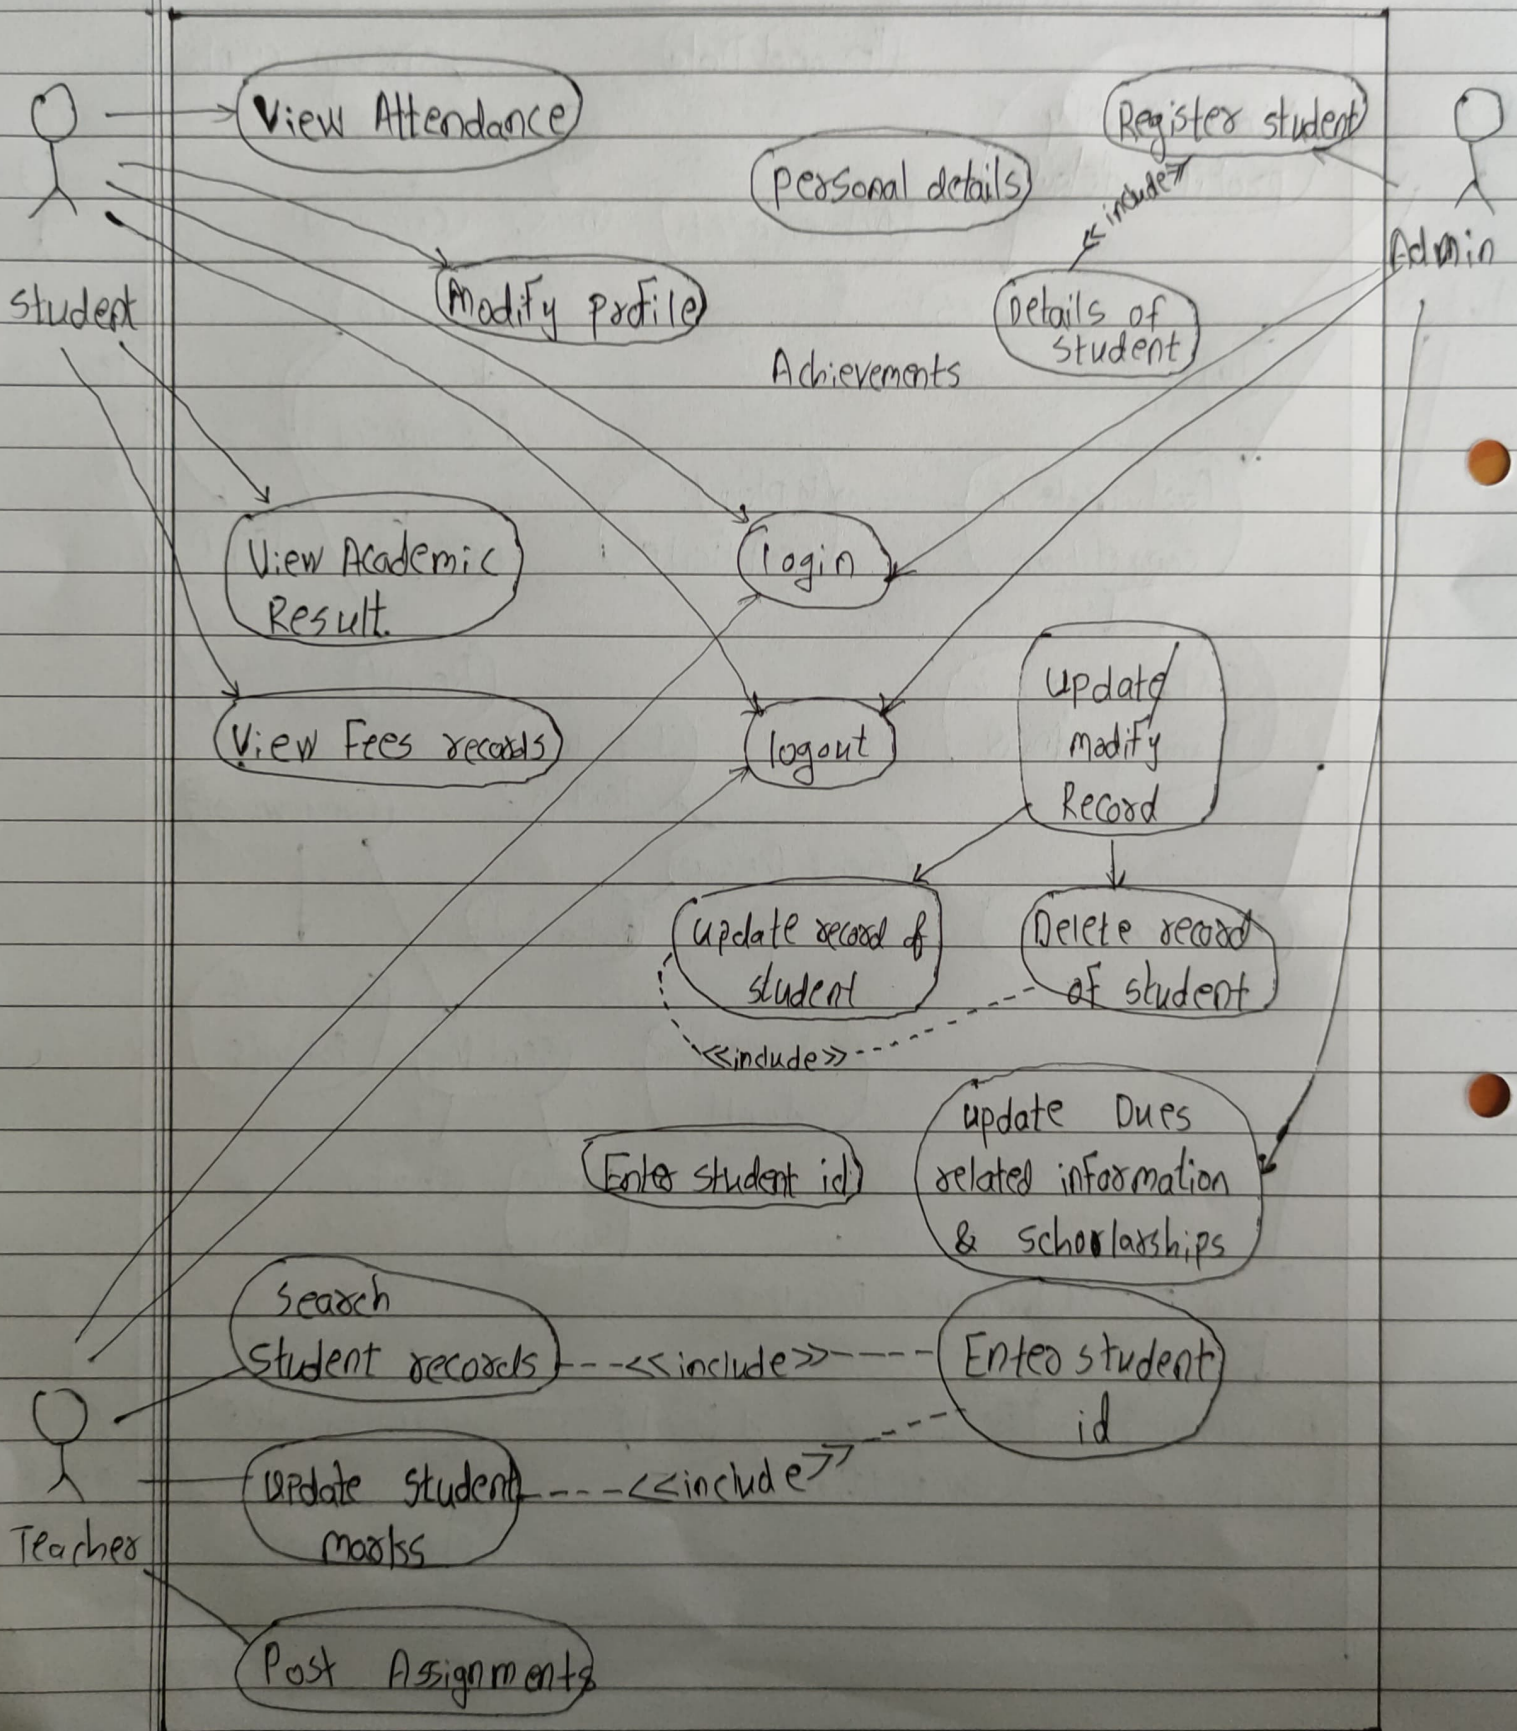 View Attendance
Register student
Personal details
<<include>>
Admin
Student
Modify profile
Details of
student
Achievements
View Academic
Result.
login
Update/
modify
Record
View Fees records
logout
update record of
student
Delete record
of student
<<include>>
update Dues
related information
& schorlarships
Enter student id
Search
student records
<<include>>
Enter student
id
Update student
marks
<<include>>
Teacher
Post Assignments